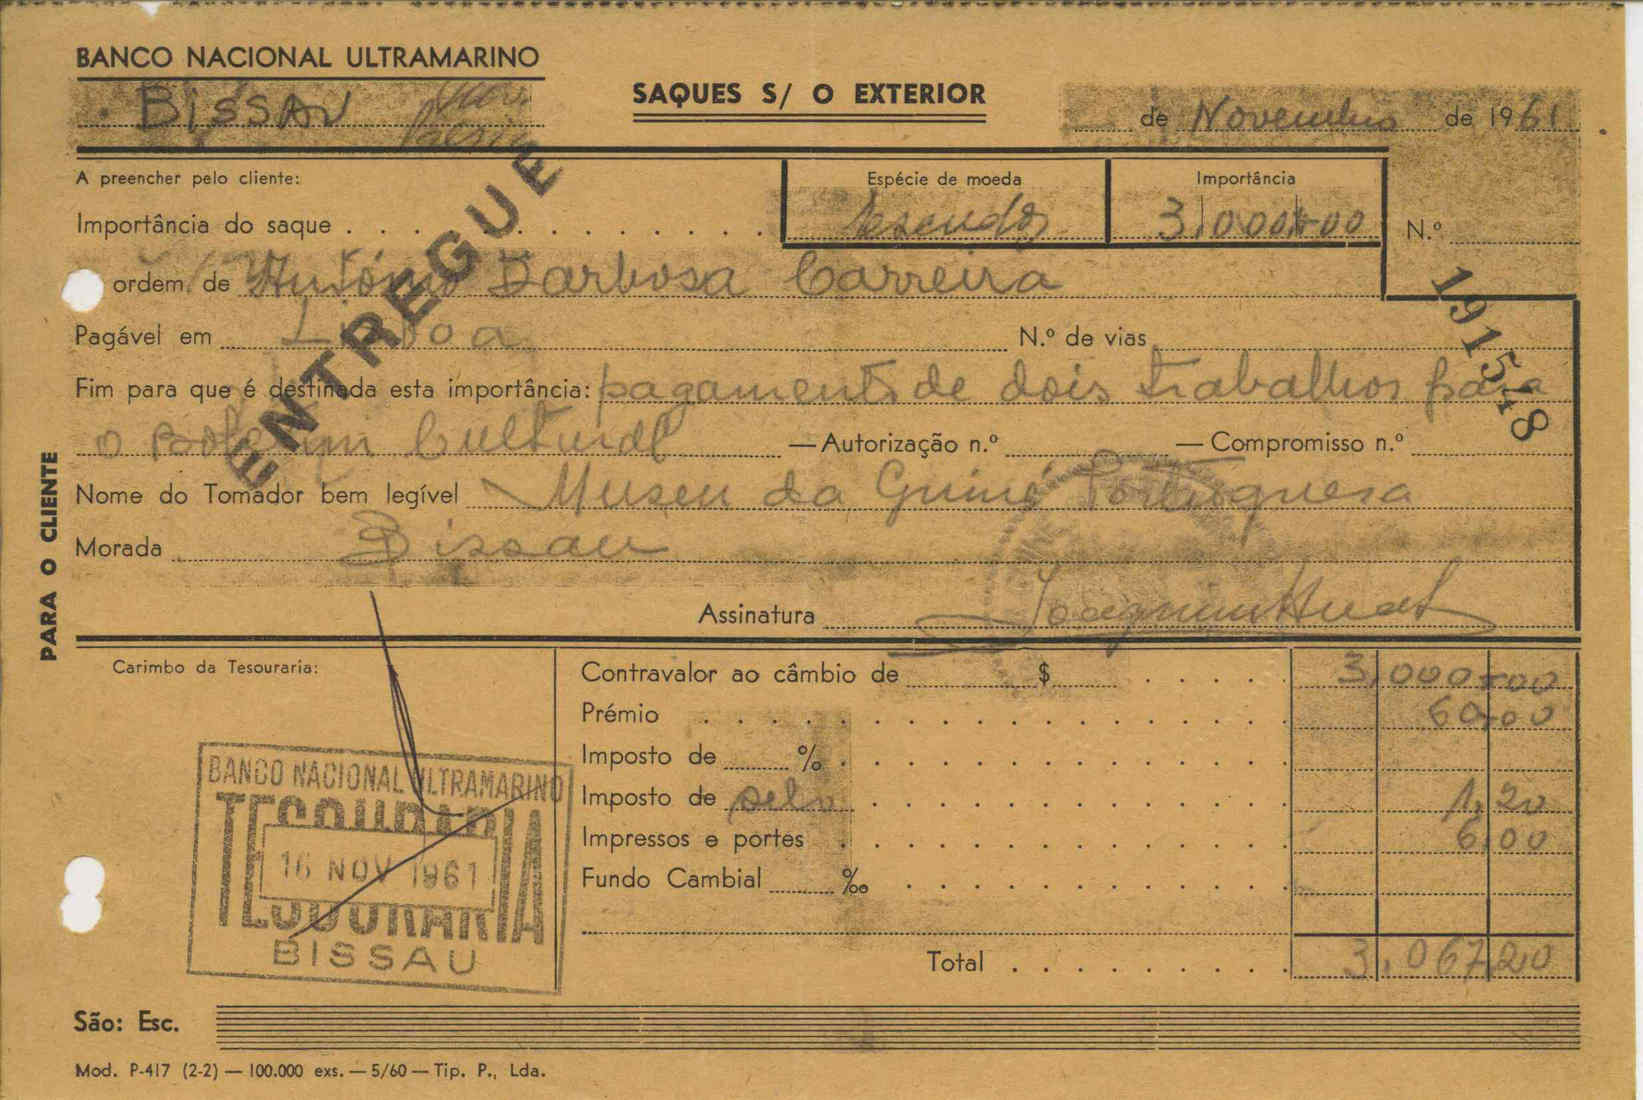 BANCO NACIONAL ULTRAMARINO
BISSAU
SAQUES S/ O EXTERIOR
de Novembro de 1961
A preencher pelo cliente:
Espécie de moeda
Importância
Importância do saque
Escudos
3.000$00
N.º
191548
ordem de António Barbosa Carreira
Pagável em Lisboa
N.º de vias
Fim para que é destinada esta importância: pagamento de dois trabalhos para
o Boletim Cultural — Autorização n.º — Compromisso n.º
Nome do Tomador bem legível Museu da Guiné Portuguesa
Morada Bissau
Assinatura
ENTREGUE
PARA O CLIENTE
Carimbo da Tesouraria:
BANCO NACIONAL ULTRAMARINO
TESOURARIA
16 NOV 1961
TESOURARIA
BISSAU
Contravalor ao câmbio de $ 3.000$00
Prémio 60,00
Imposto de %
Imposto de selo 1,20
Impressos e portes 6,00
Fundo Cambial ‰
Total 3.067,20
São: Esc.
Mod. P-417 (2-2) — 100.000 exs. — 5/60 — Tip. P., Lda.